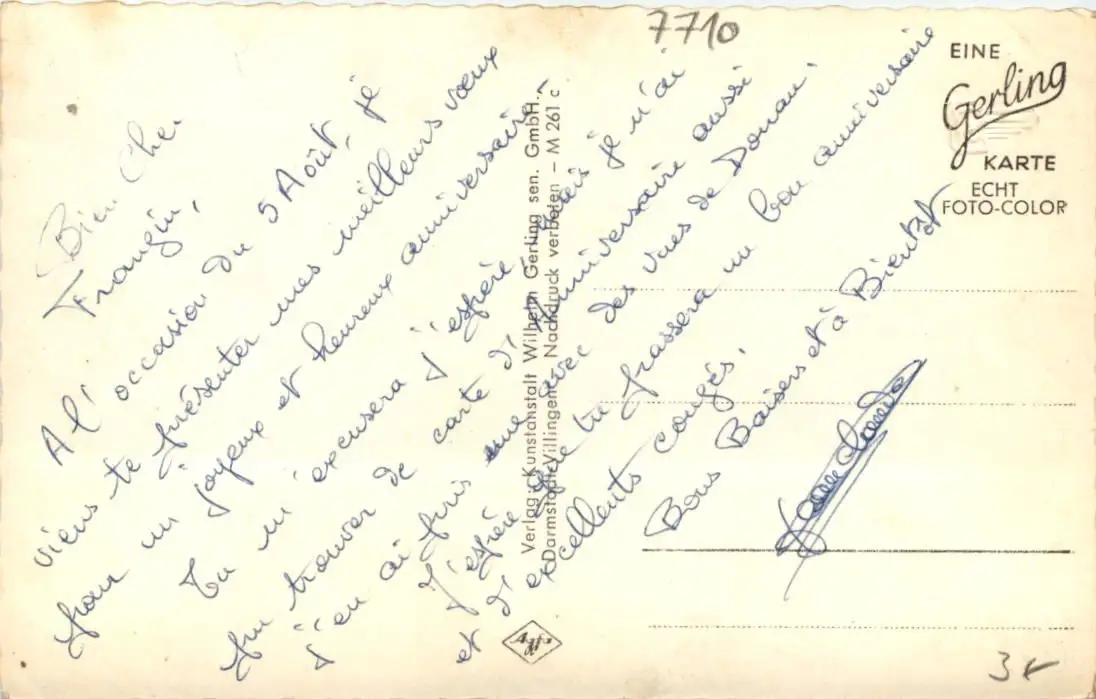 7710
Bien Cher
Frangin,
A l'occasion du 5 Août, je
viens te présenter mes meilleurs vœux
pour un joyeux et heureux anniversaire.
Tu m'excusera j'espère, mais je n'ai
pu trouver de carte d'anniversaire aussi
j'en ai pris une avec des vues de Donau.
J'espère que tu passera un bon anniversaire
et d'excellents congés.
Bons Baisers et à Bientôt
Verlag: Kunstanstalt Wilhelm Gerling sen. GmbH.
Darmstadt/Villingen Nachdruck verboten – M 261 c
EINE
Gerling
KARTE
ECHT
FOTO-COLOR
Agfa
3€